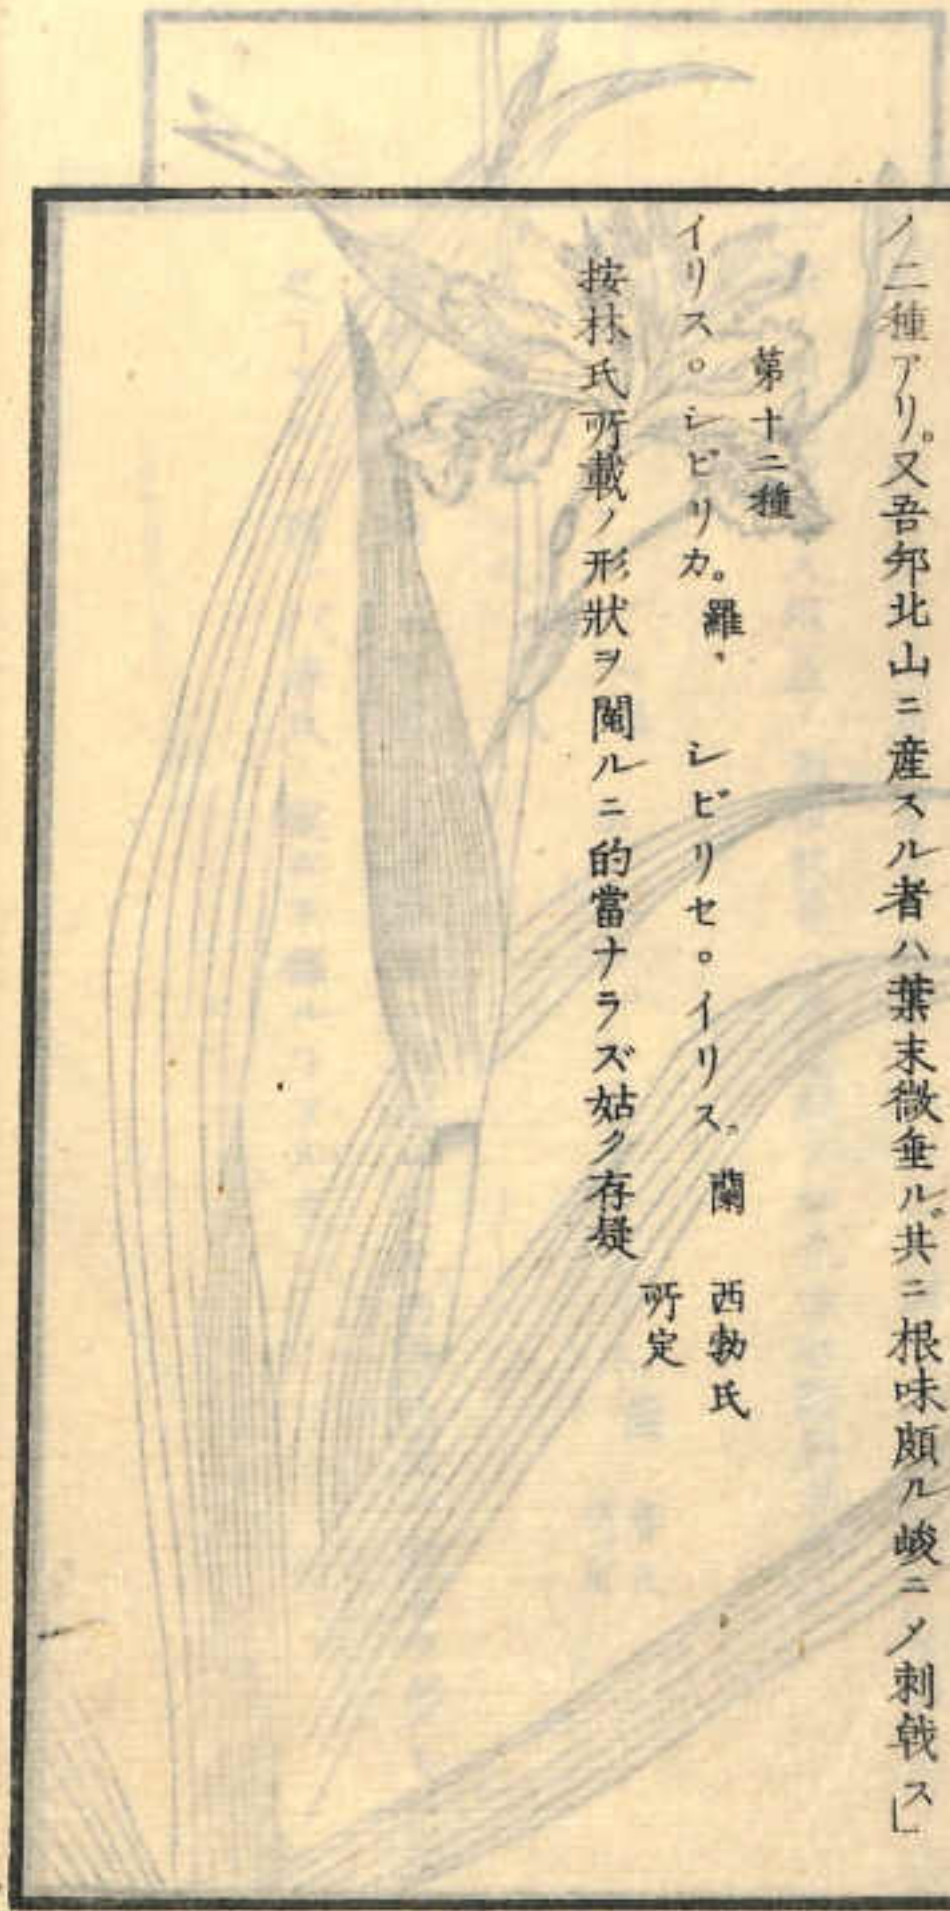 ノ二種アリ。又吾邦北山ニ産スル者ハ葉末微垂ル。共ニ根味頗ル峻ニメ刺戟ス」
第十二種
イリス。シビリカ。羅、 シビリセ。イリス。蘭 西勃氏
所定
按林氏所載ノ形狀ヲ閲ルニ的當ナラズ姑ク存疑